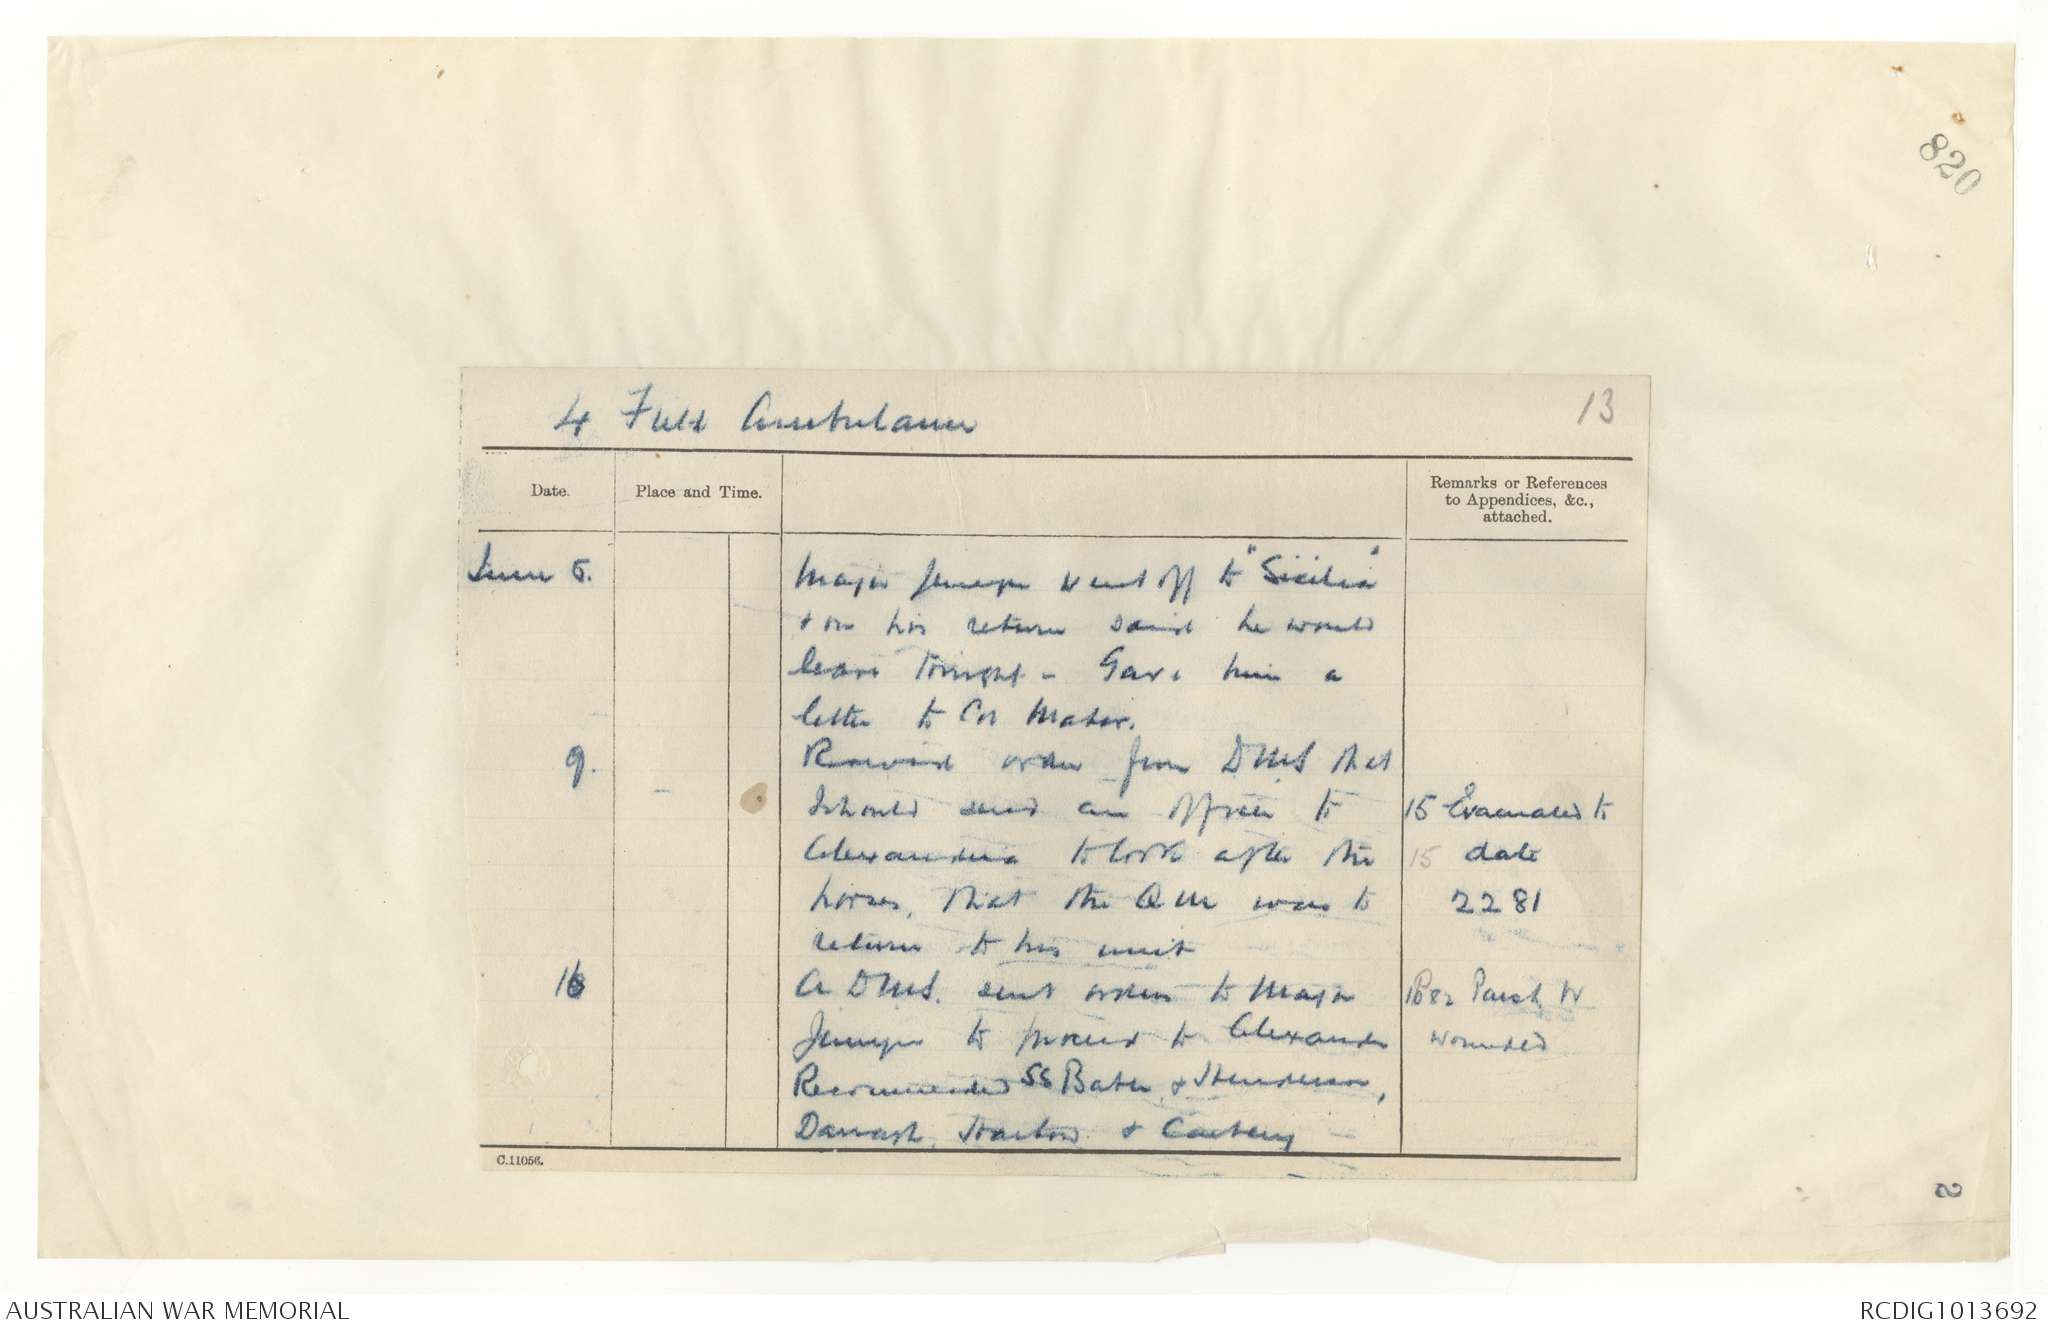 820
4 Field Ambulance
13
Date.
Place and Time.
Remarks or References
to Appendices, &c.,
attached.
June 5.
Major Jeneyn went off to "Sicilia"
& on his return said he would
leave tonight - Gave him a
letter to Col Maher.
9.
Received order from DMS that
I should send an officer to
Alexandria to look after the
horses, that the QM was to
return to his unit
15 Evacuated to
15 date
2281
A DMS. sent orders to Major
to proceed to Alexandria
Recommended SS Baber & Henderson,
& Carbery
Wounded
C.11056.
AUSTRALIAN WAR MEMORIAL
RCDIG1013692